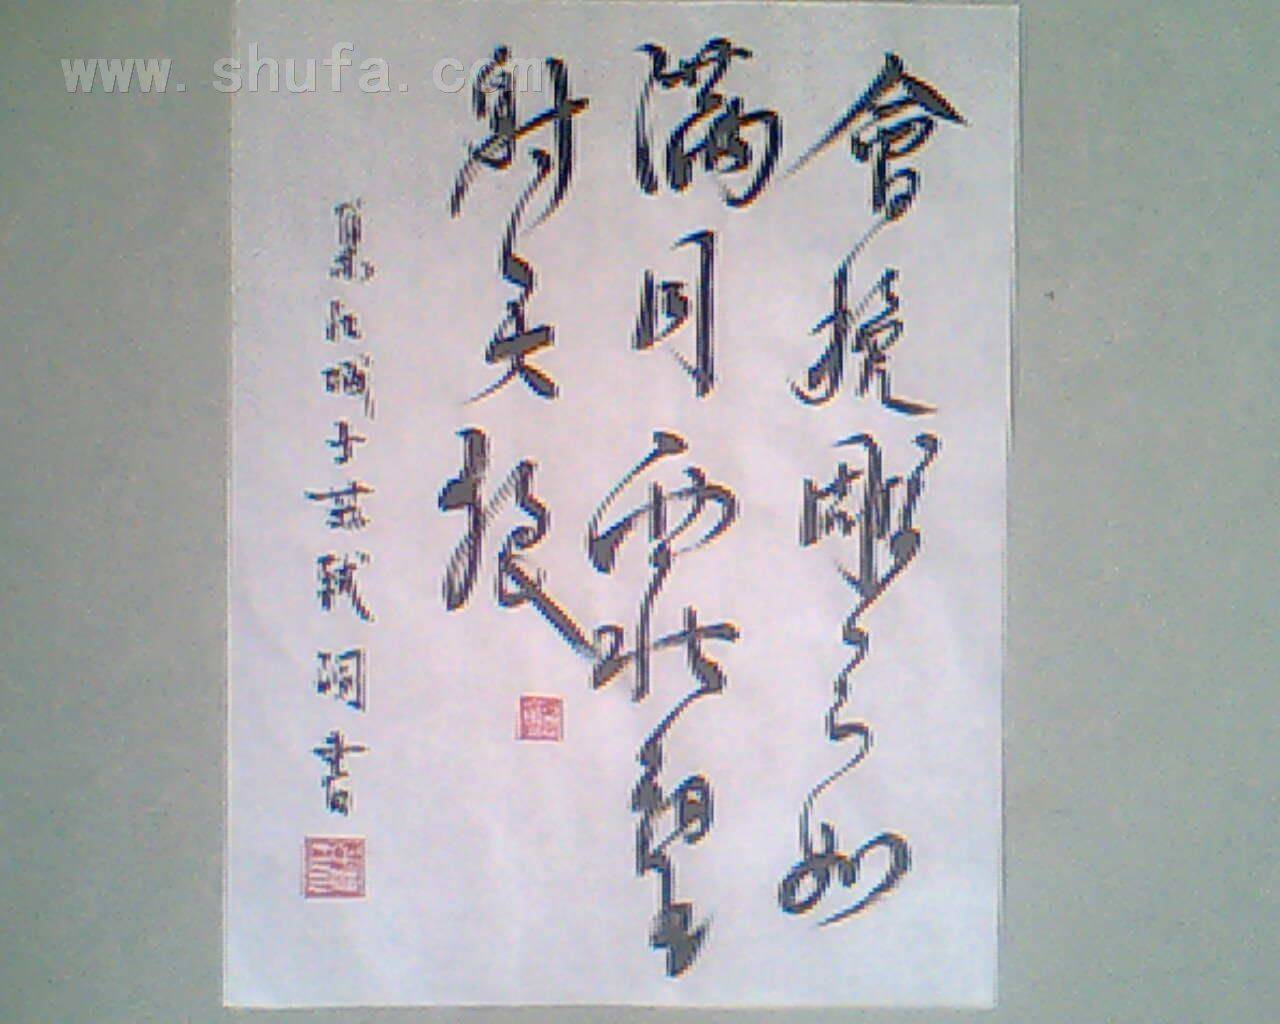 www.shufa.com
會挽雕弓如
滿月西北望
射天狼
江城子蘇軾詞書